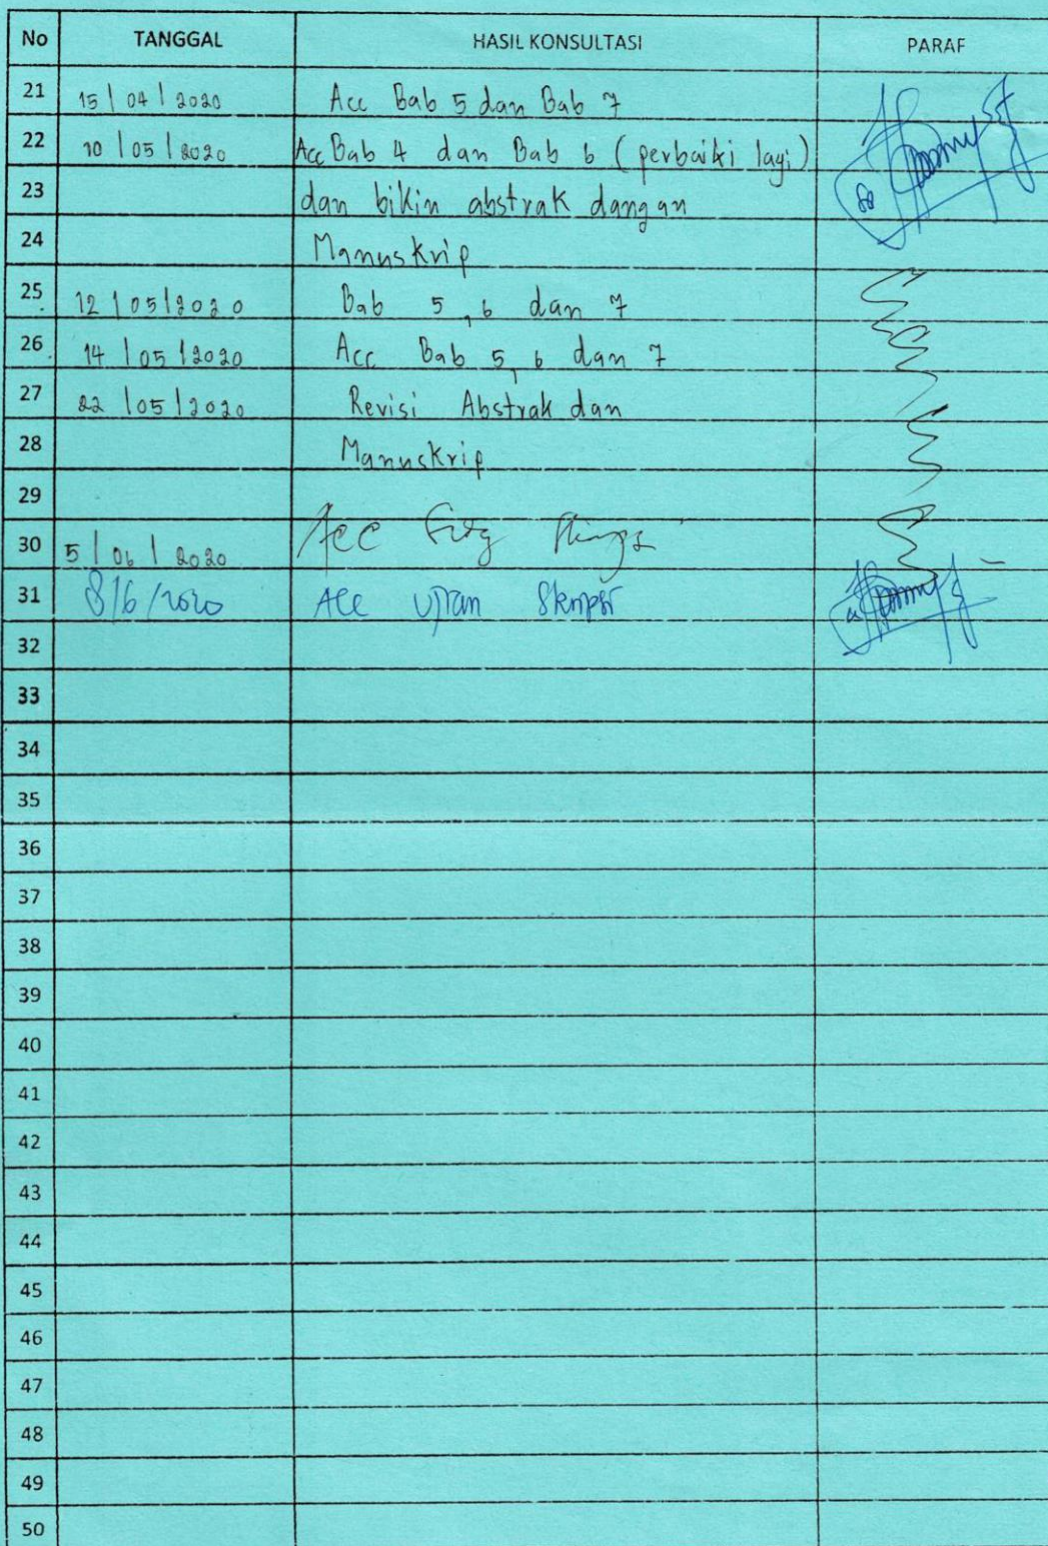 No TANGGAL HASIL KONSULTASI PARAF
21 15 | 04 | 2020 Acc Bab 5 dan Bab 7
22 10 | 05 | 2020 Acc Bab 4 dan Bab 6 (perbaiki lagi)
23 dan bikin abstrak dangan
24 Manuskrip
25 12 | 05 | 2020 Bab 5, 6 dan 7
26 14 | 05 | 2020 Acc Bab 5, 6 dan 7
27 22 | 05 | 2020 Revisi Abstrak dan
28 Manuskrip
29
30 5 | 06 | 2020 Acc
31 8/6/2020 Acc Ujian Skripsi
32
33
34
35
36
37
38
39
40
41
42
43
44
45
46
47
48
49
50